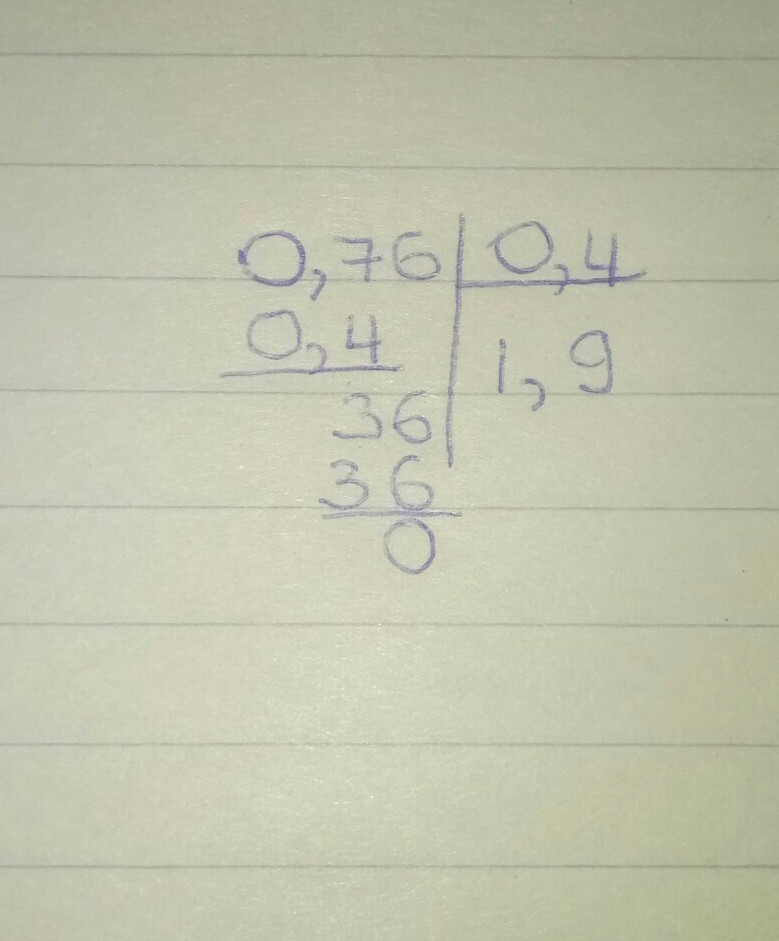 0,76 0,4
0,4 1,9
36
36
0